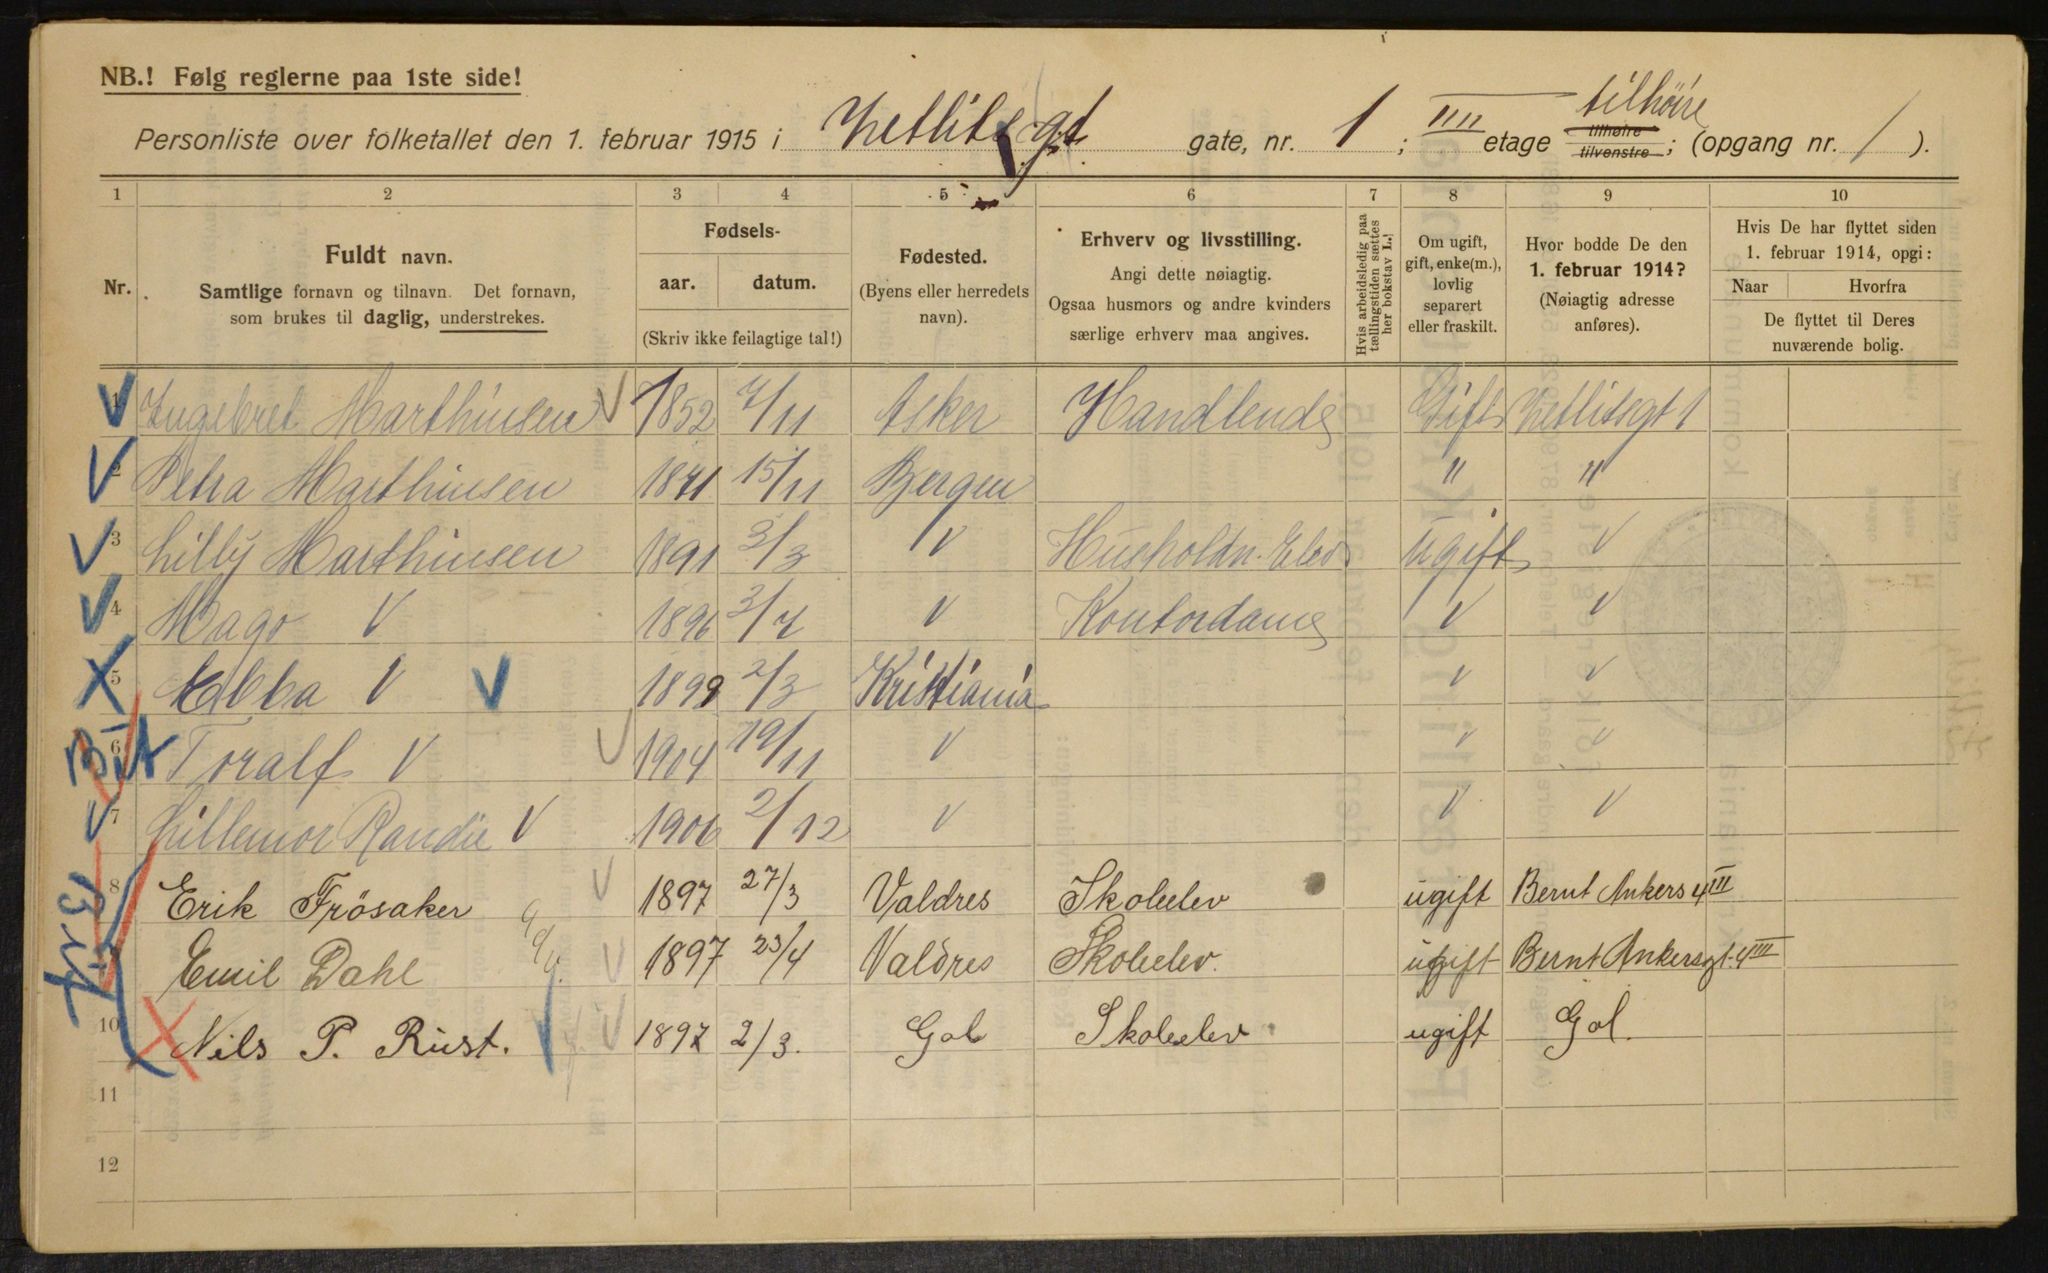 NB.! Følg reglerne paa 1ste side!
Personliste over folketallet den 1. februar 1915 i Zetlitzgt. gate, nr. 1 ; IIII etage tilhøire tilhøire tilvenstre ; (opgang nr. 1 ).
1 2 3 4 5 6 7 8 9 10
Nr.
Fuldt navn.
Samtlige fornavn og tilnavn. Det fornavn,
som brukes til daglig, understrekes.
Fødsels-
aar. datum.
(Skriv ikke feilagtige tal!)
Fødested.
(Byens eller herredets
navn).
Erhverv og livsstilling.
Angi dette nøiagtig.
Ogsaa husmors og andre kvinders
særlige erhverv maa angives.
Hvis arbeidsledig paa
tællingstiden sættes
her bokstav L.!
Om ugift,
gift, enke(m.),
lovlig
separert
eller fraskilt.
Hvor bodde De den
1. februar 1914?
(Nøiagtig adresse
anføres).
Hvis De har flyttet siden
1. februar 1914, opgi:
Naar Hvorfra
De flyttet til Deres
nuværende bolig.
1 Ingebret Marthinsen 1852 7/11 Asker Handlende Gift Zetlitsgt 1
2 Petra Marthinsen 1871 15/11 Bergen " "
3 Lilly Marthinsen 1891 3/3 V Husholdn. Elev ugift V
4 Mago V 1896 3/7 V Kontordame V V
5 Ebba V 1899 2/3 Kristiania V V
6 Toralf V 1904 19/11 V V V
7 Lillemor Randie V 1906 2/12 V V V
8 Erik Frösaker 1897 27/3 Valdres Skoleelev ugift Bernt Ankers 4 III
Emil Dahl 1897 23/4 Valdres Skoleelev. ugift Bernt Ankersgt. 4 III
10 Nils P. Rust. 1897 2/3. Gol Skoleelev ugift Gol.
11
12